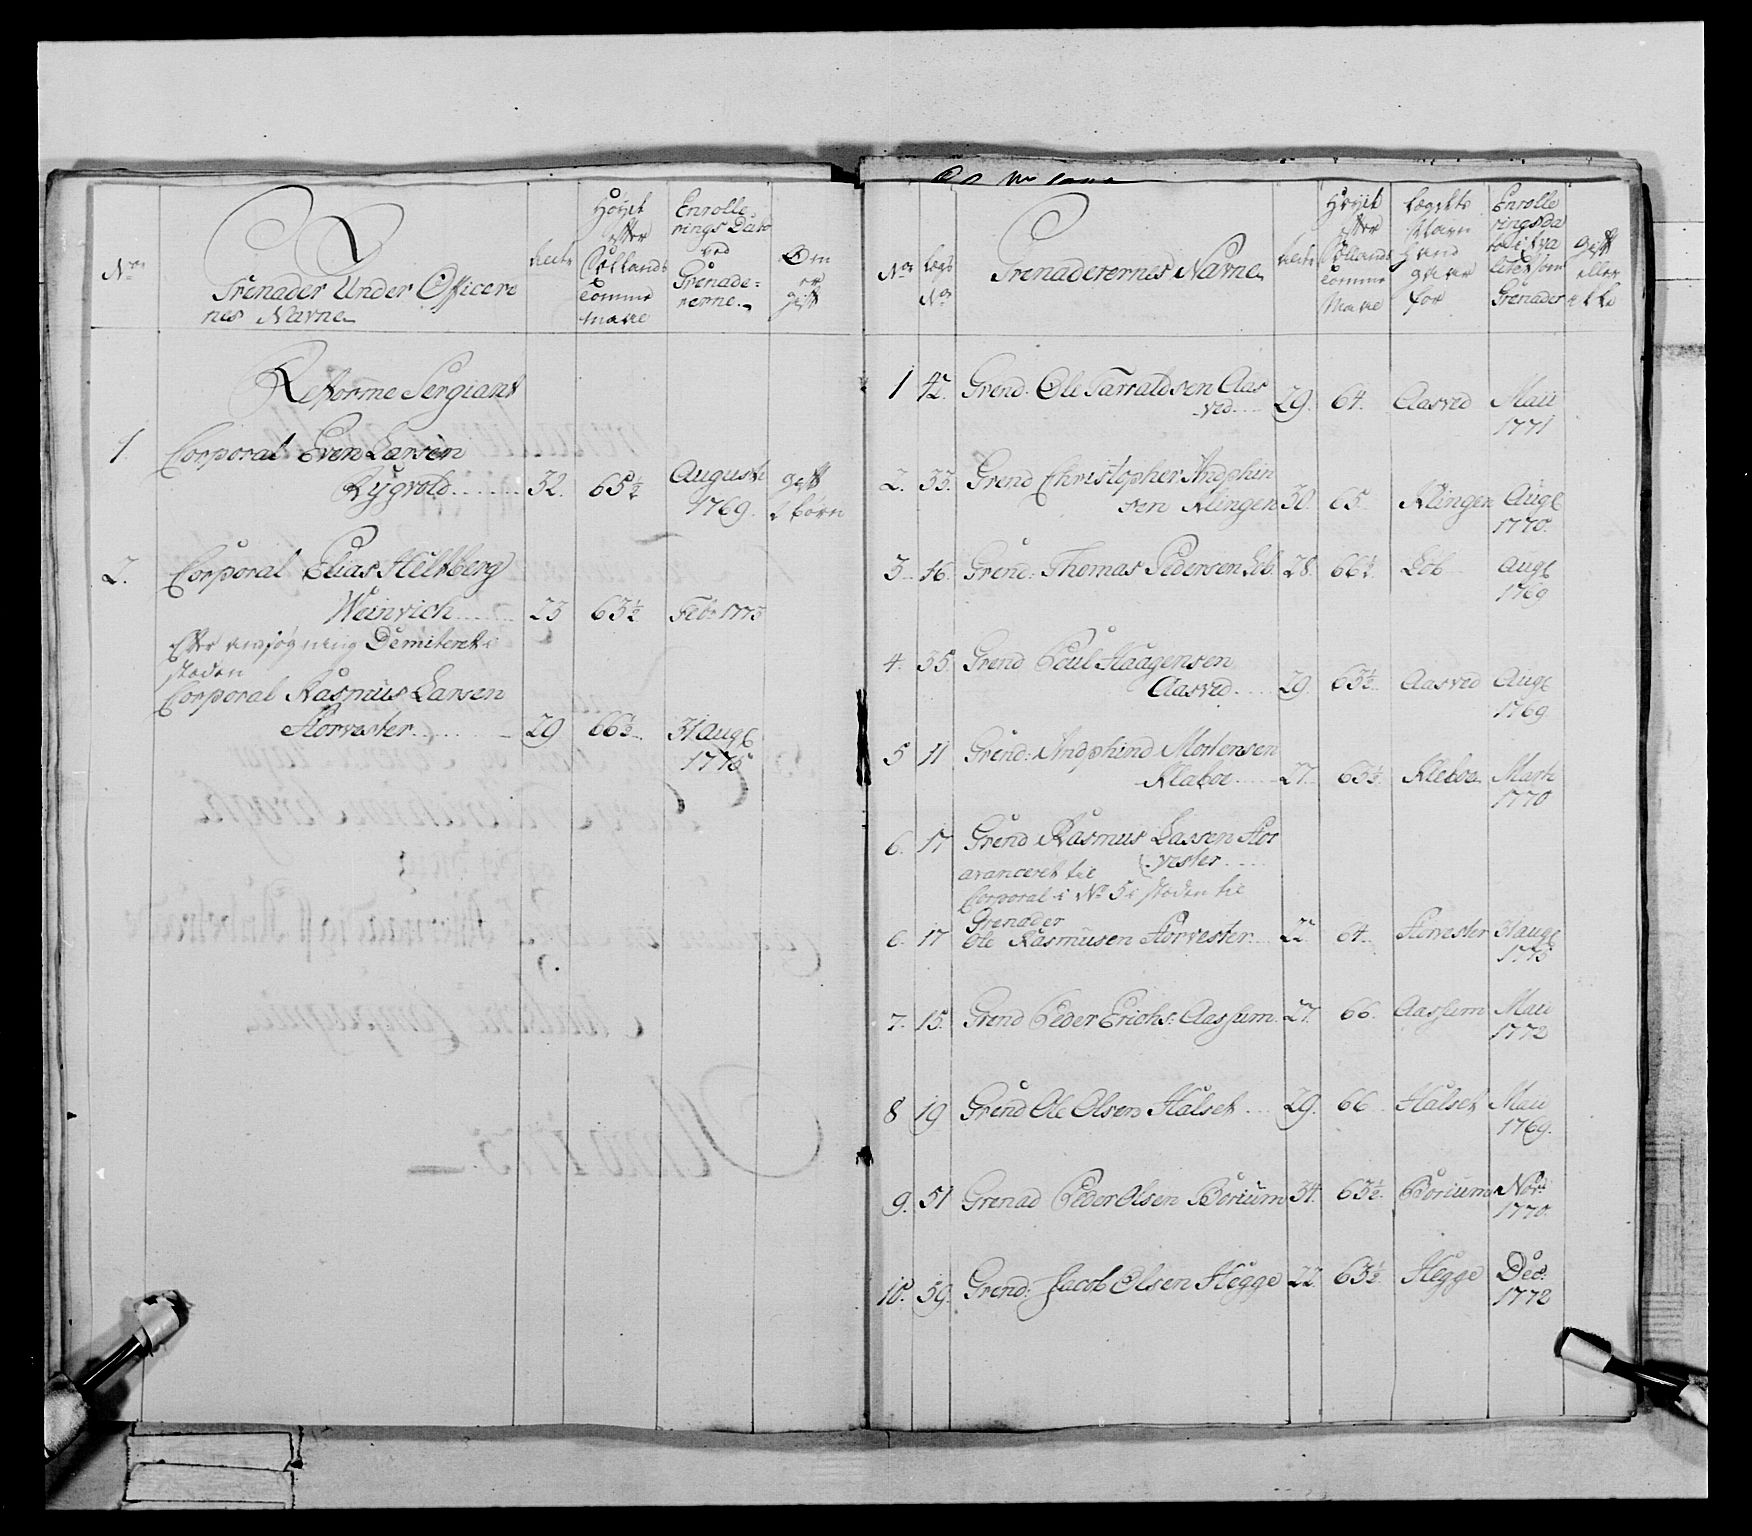 No
Grenader Under Officere
nes Navne
Høyet
efter
Sollands
Tomme
Maae
Enrolle
rings Dato
ved
Grenade-
rerne.
Om
er
gift
Reforme Sergiant
1. Corporal Even Larsen
Rygvold 32. 65½ Augusti gift
1769. 2 børn
2. Corporal Elias Heltberg
Weinrich 23 63½ Febr 1773
Efter ansøgning Demiteret i
steden
Corporal Rasmus Larsen
Storvester 29 66½ 31 Aug
1775
No
Lægs
No
Grenaderernes Navne
Høyet
efter
Sollands
Tomme
Maae
Lægdets
Navn
hand
staaer
for
Enrolle
ringsda
to i qva
litet som
Grenader
gift
eller
ikke
1 42. Grend. Ole Tarraldsen Aas
ved 29. 64. Aasved Maii
1771
2. 33. Grend Christopher Indphin
sen Klingen 30. 65. Klingen Aug
1770.
3 46. Grend: Thomas Pedersen Lob 28. 66½ Lob Aug
1769
4. 35. Grend Poul Haagensen
Aasved 29. 63½ Aasved Aug
1769
5 11 Grend: Indphind Mortensen
Kleboe 27. 63½ Kleboe Marti
1770
6. 17 Grend Rasmus Lassen Stor
vester
avanceret til
Corporal i No 5 i steden til
Grenader
6. 17 Ole Rasmusen Storvester 22 64 Storvester 31 aug
1775
7. 15. Grend Peder Erichs: Aassum 27. 66. Aassum Maii
1772
8 19 Grend Ole Olsen Halset 29. 66 Halset Maii
1769.
9. 51 Grenad Peder Olsen Borium 34. 63½ Borium Nov
1770.
10. 59. Grend: Jacob Olsen Hegge 22 63½ Hegge Dec:
1772